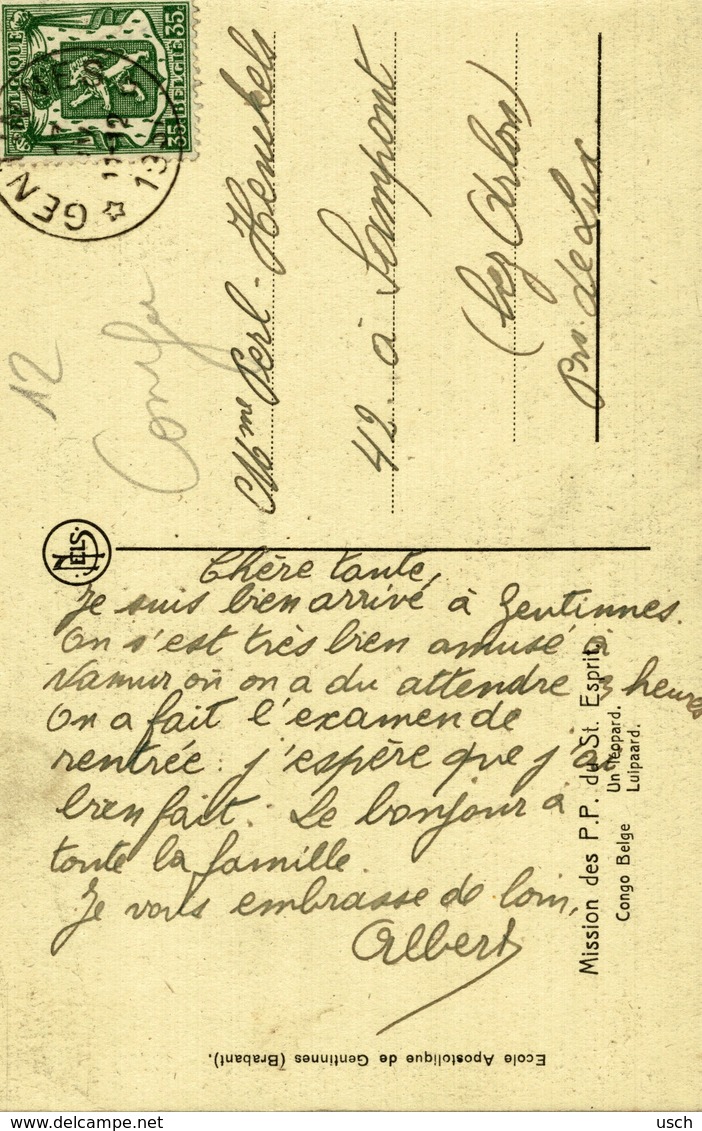 BELGIQUE
35
BELGIË
35
12
Conf
Mme Perl - Henckels
42 à Sampont
(lez Arlon)
Prov. de Lux
NELS
Chère tante,
Je suis bien arrivé à Gentinnes.
On s'est très bien amusé à
Namur où on a du attendre 3 heures
On a fait l'examen de
rentrée. j'espère que j'ai
bien fait. Le bonjour à
toute la famille.
Je vous embrasse de loin,
Albert
Mission des P.P. du St. Esprit.
Congo Belge
Un léopard.
Luipaard.
Ecole Apostolique de Gentinnes (Brabant).
delcampe.net
usch